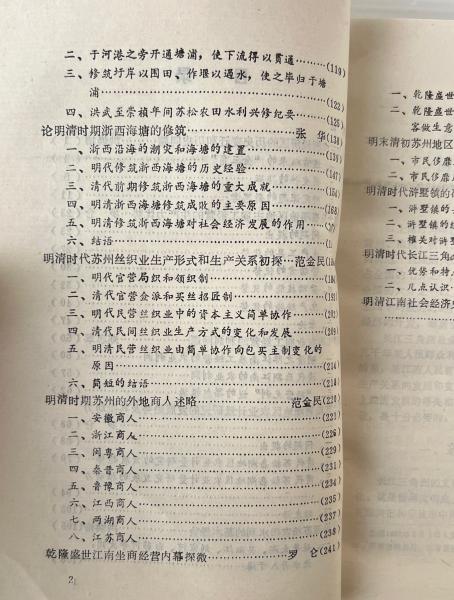 二、于河港之旁开通塘浦，使下流得以贯通………(119)
三、修筑圩岸以围田，作堰以遏水，使之毕归于塘
浦……………(122)
四、洪武至崇祯年间苏松农田水利兴修纪要………(125)
论明清时期浙西海塘的修筑……………张 华(138)
一、浙西沿海的潮灾和海塘的建置……………
二、明代修筑浙西海塘的历史经验……………(147)
三、清代前期修筑浙西海塘的重大成就…………(154)
四、清时期修筑浙西海塘成败的主要原因………(168)
五、明清修筑浙西海塘对社会经济发展的作用……
六、结语……………
明清时代苏州丝织业生产形式和生产关系初探…范金民
一、明代官营局织和领织制……………
二、清代官营佥派和买丝招匠制……………(192)
三、明代民营丝织业中的资本主义简单协作………
四、清代民间丝织业生产方式的变化和发展………(209)
五、明清民营丝织业由简单协作向包买主制变化的
原因……………(214)
六、简短的结语……………(218)
明清时期苏州的外地商人述略……………范金民(220)
一、安徽商人……………(221)
二、浙江商人……………(226)
三、闽粤商人……………(229)
四、秦晋商人……………(231)
五、鲁豫商人……………(234)
六、江西商人……………(235)
七、两湖商人……………(237)
八、江苏商人……………(238)
乾隆盛世江南坐商经营内幕探微……………罗 仑(241)
2
一、乾隆盛世
二、乾隆盛世
客做生意
明末清初苏州地区
一、市民侈靡
二、市民侈靡
明清时代浒墅镇的
一、浒墅镇的
二、浒墅镇的
三、榷关对浒墅
明清时代长江三角
一、优势和特点
二、几点认识
明清江南社会经济史